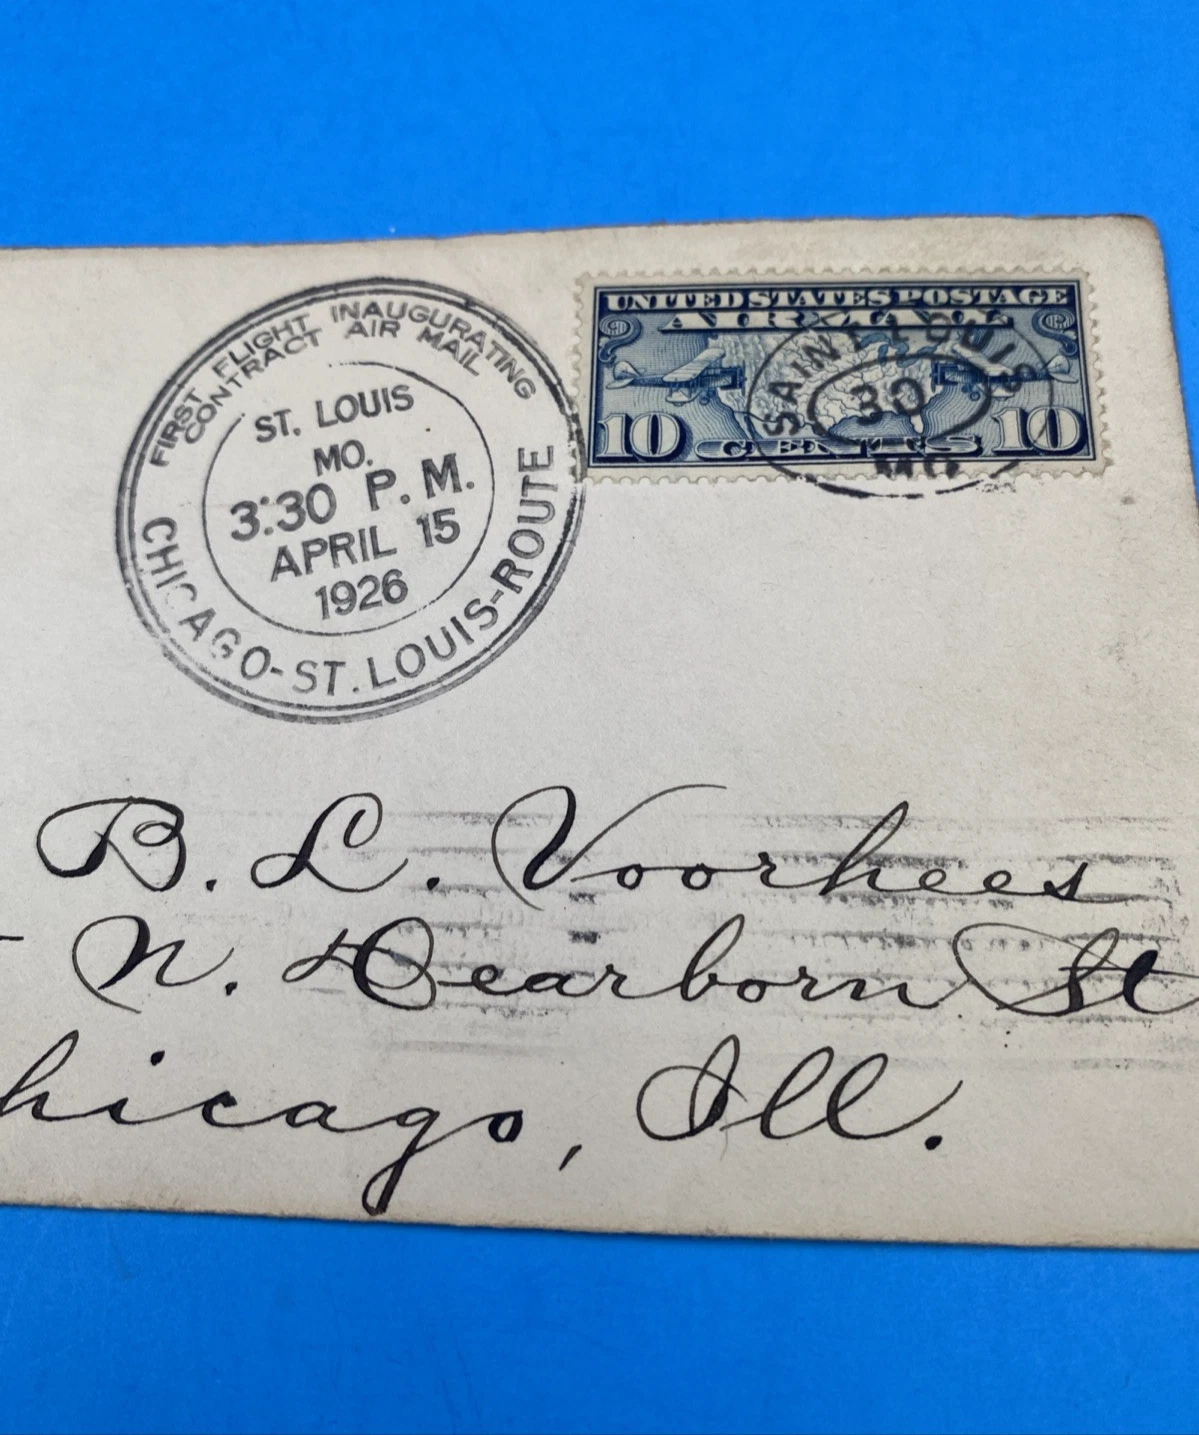 FIRST FLIGHT INAUGURATING
CONTRACT AIR MAIL
ST. LOUIS
MO.
3:30 P. M.
APRIL 15
1926
CHICAGO-ST. LOUIS-ROUTE
UNITED STATES POSTAGE
AIR MAIL
10 CENTS 10
SAINT LOUIS
30
MO
B. L. Voorhees
N. Dearborn St
hicago, Ill.